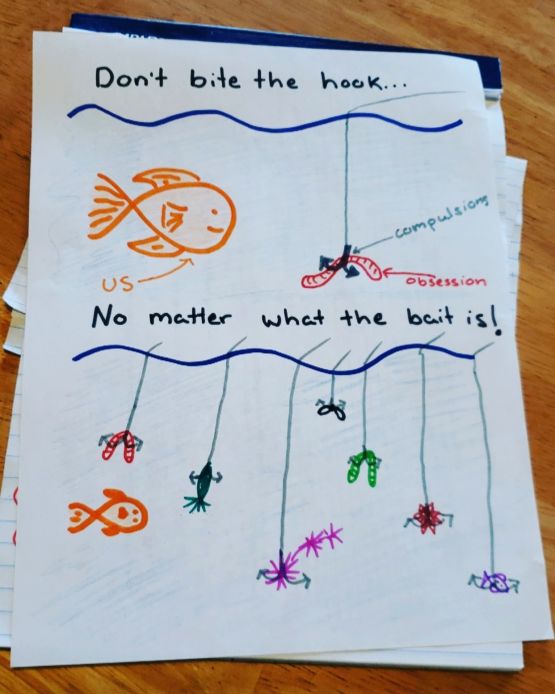 Don't bite the hook...
compulsions
obsession
US
No matter what the bait is!